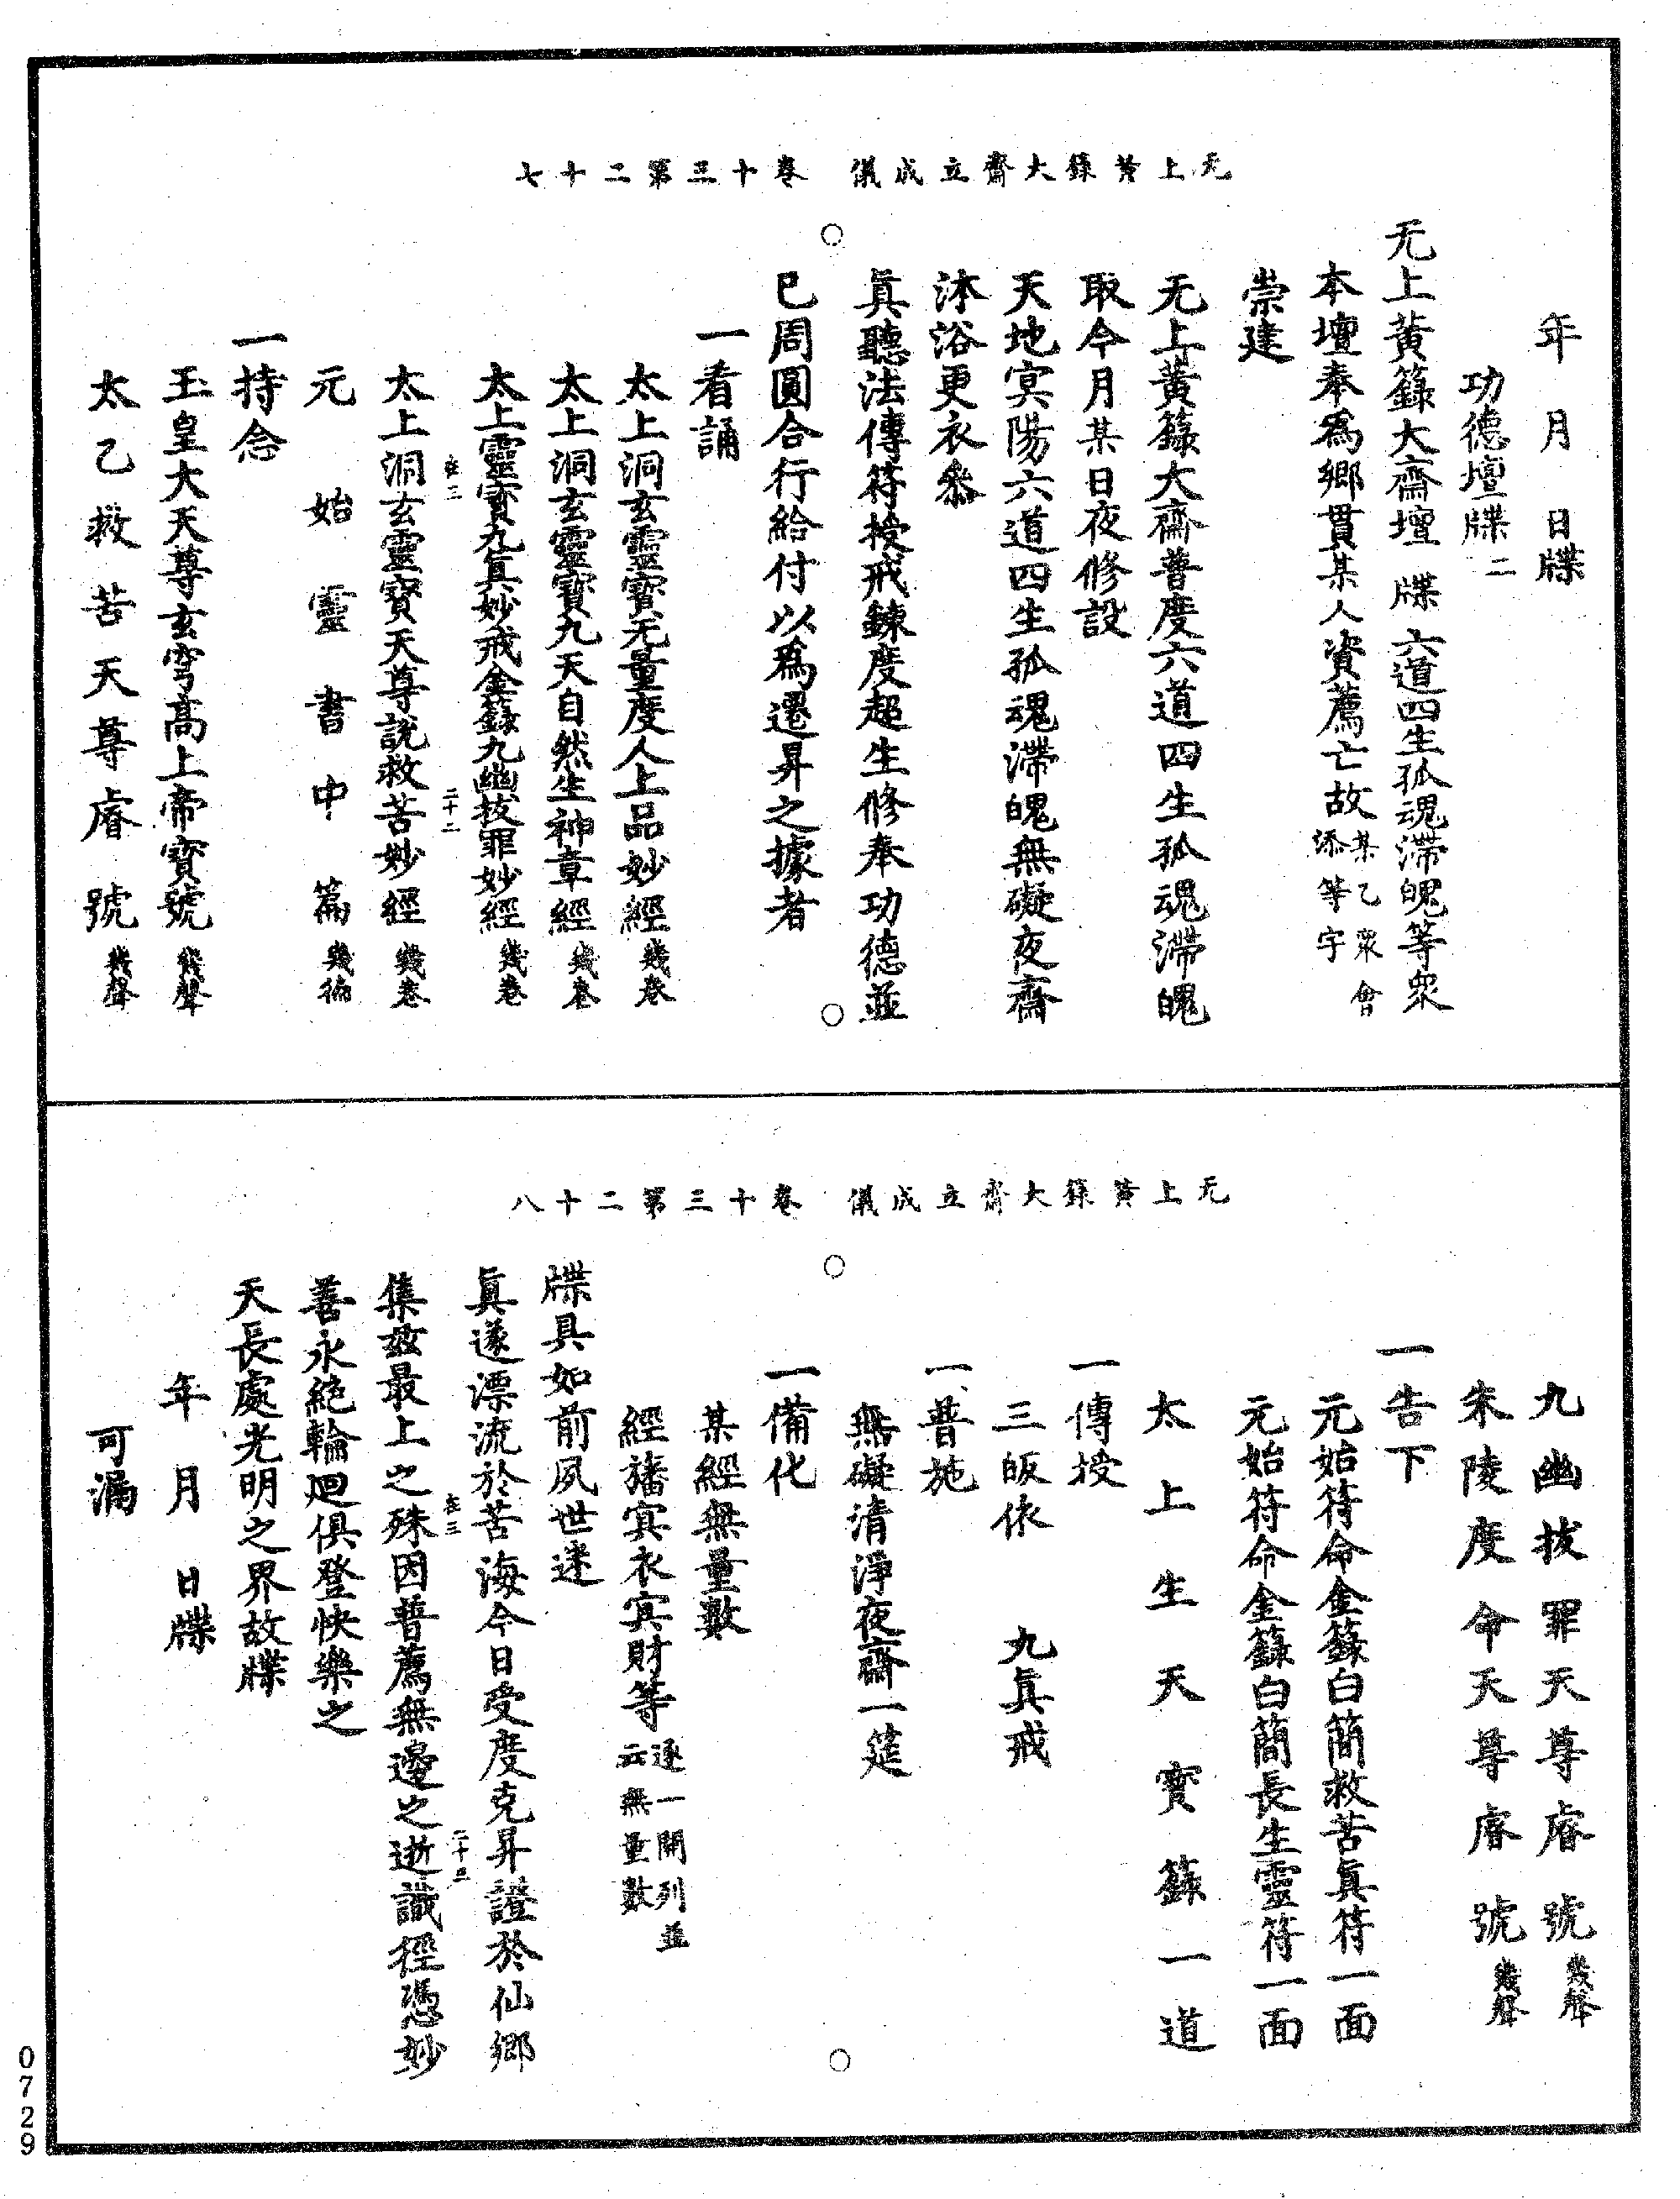 无上黃籙大齋立成儀　卷十三第二十七
年　月　日牒
功德壇牒二
无上黃籙大齋壇　牒　六道四生孤魂滯魄等衆
本壇奉爲鄉貫某人資薦亡故某乙衆會添等字
崇建
无上黃籙大齋普度六道四生孤魂滯魄
取今月某日夜修設
天地冥陽六道四生孤魂滯魄無礙夜齋
沐浴更衣叅
眞聽法傳符授戒鍊度超生修奉功德並
已周圓合行給付以爲遷昇之據者
一看誦
太上洞玄靈寶无量度人上品妙經幾卷
太上洞玄靈寶九天自然生神章經幾卷
太上靈寶九眞妙戒金籙九幽拔罪妙經幾卷
在三　二十二
太上洞玄靈寶天尊說救苦妙經幾卷
元始靈書中篇幾徧
一持念
玉皇大天尊玄穹高上帝寶號幾聲
太乙救苦天尊睿號幾聲
无上黃籙大齋立成儀　卷十三第二十八
九幽拔罪天尊睿號幾聲
朱陵度命天尊睿號幾聲
一告下
元始符命金籙白簡救苦眞符一面
元始符命金籙白簡長生靈符一面
太上生天寶籙一道
一傳授
三皈依　九眞戒
一普施
無礙清淨夜齋一筵
一備化
某經無量數
經旛冥衣冥財等逐一開列並云無量數
牒具如前夙世迷
眞遂漂流於苦海今日受度克昇證於仙鄉
在三　二十三
集茲最上之殊因普薦無邊之逝識徑憑妙
善永絕輪迴俱登快樂之
天長處光明之界故牒
年　月　日牒
可漏
0729